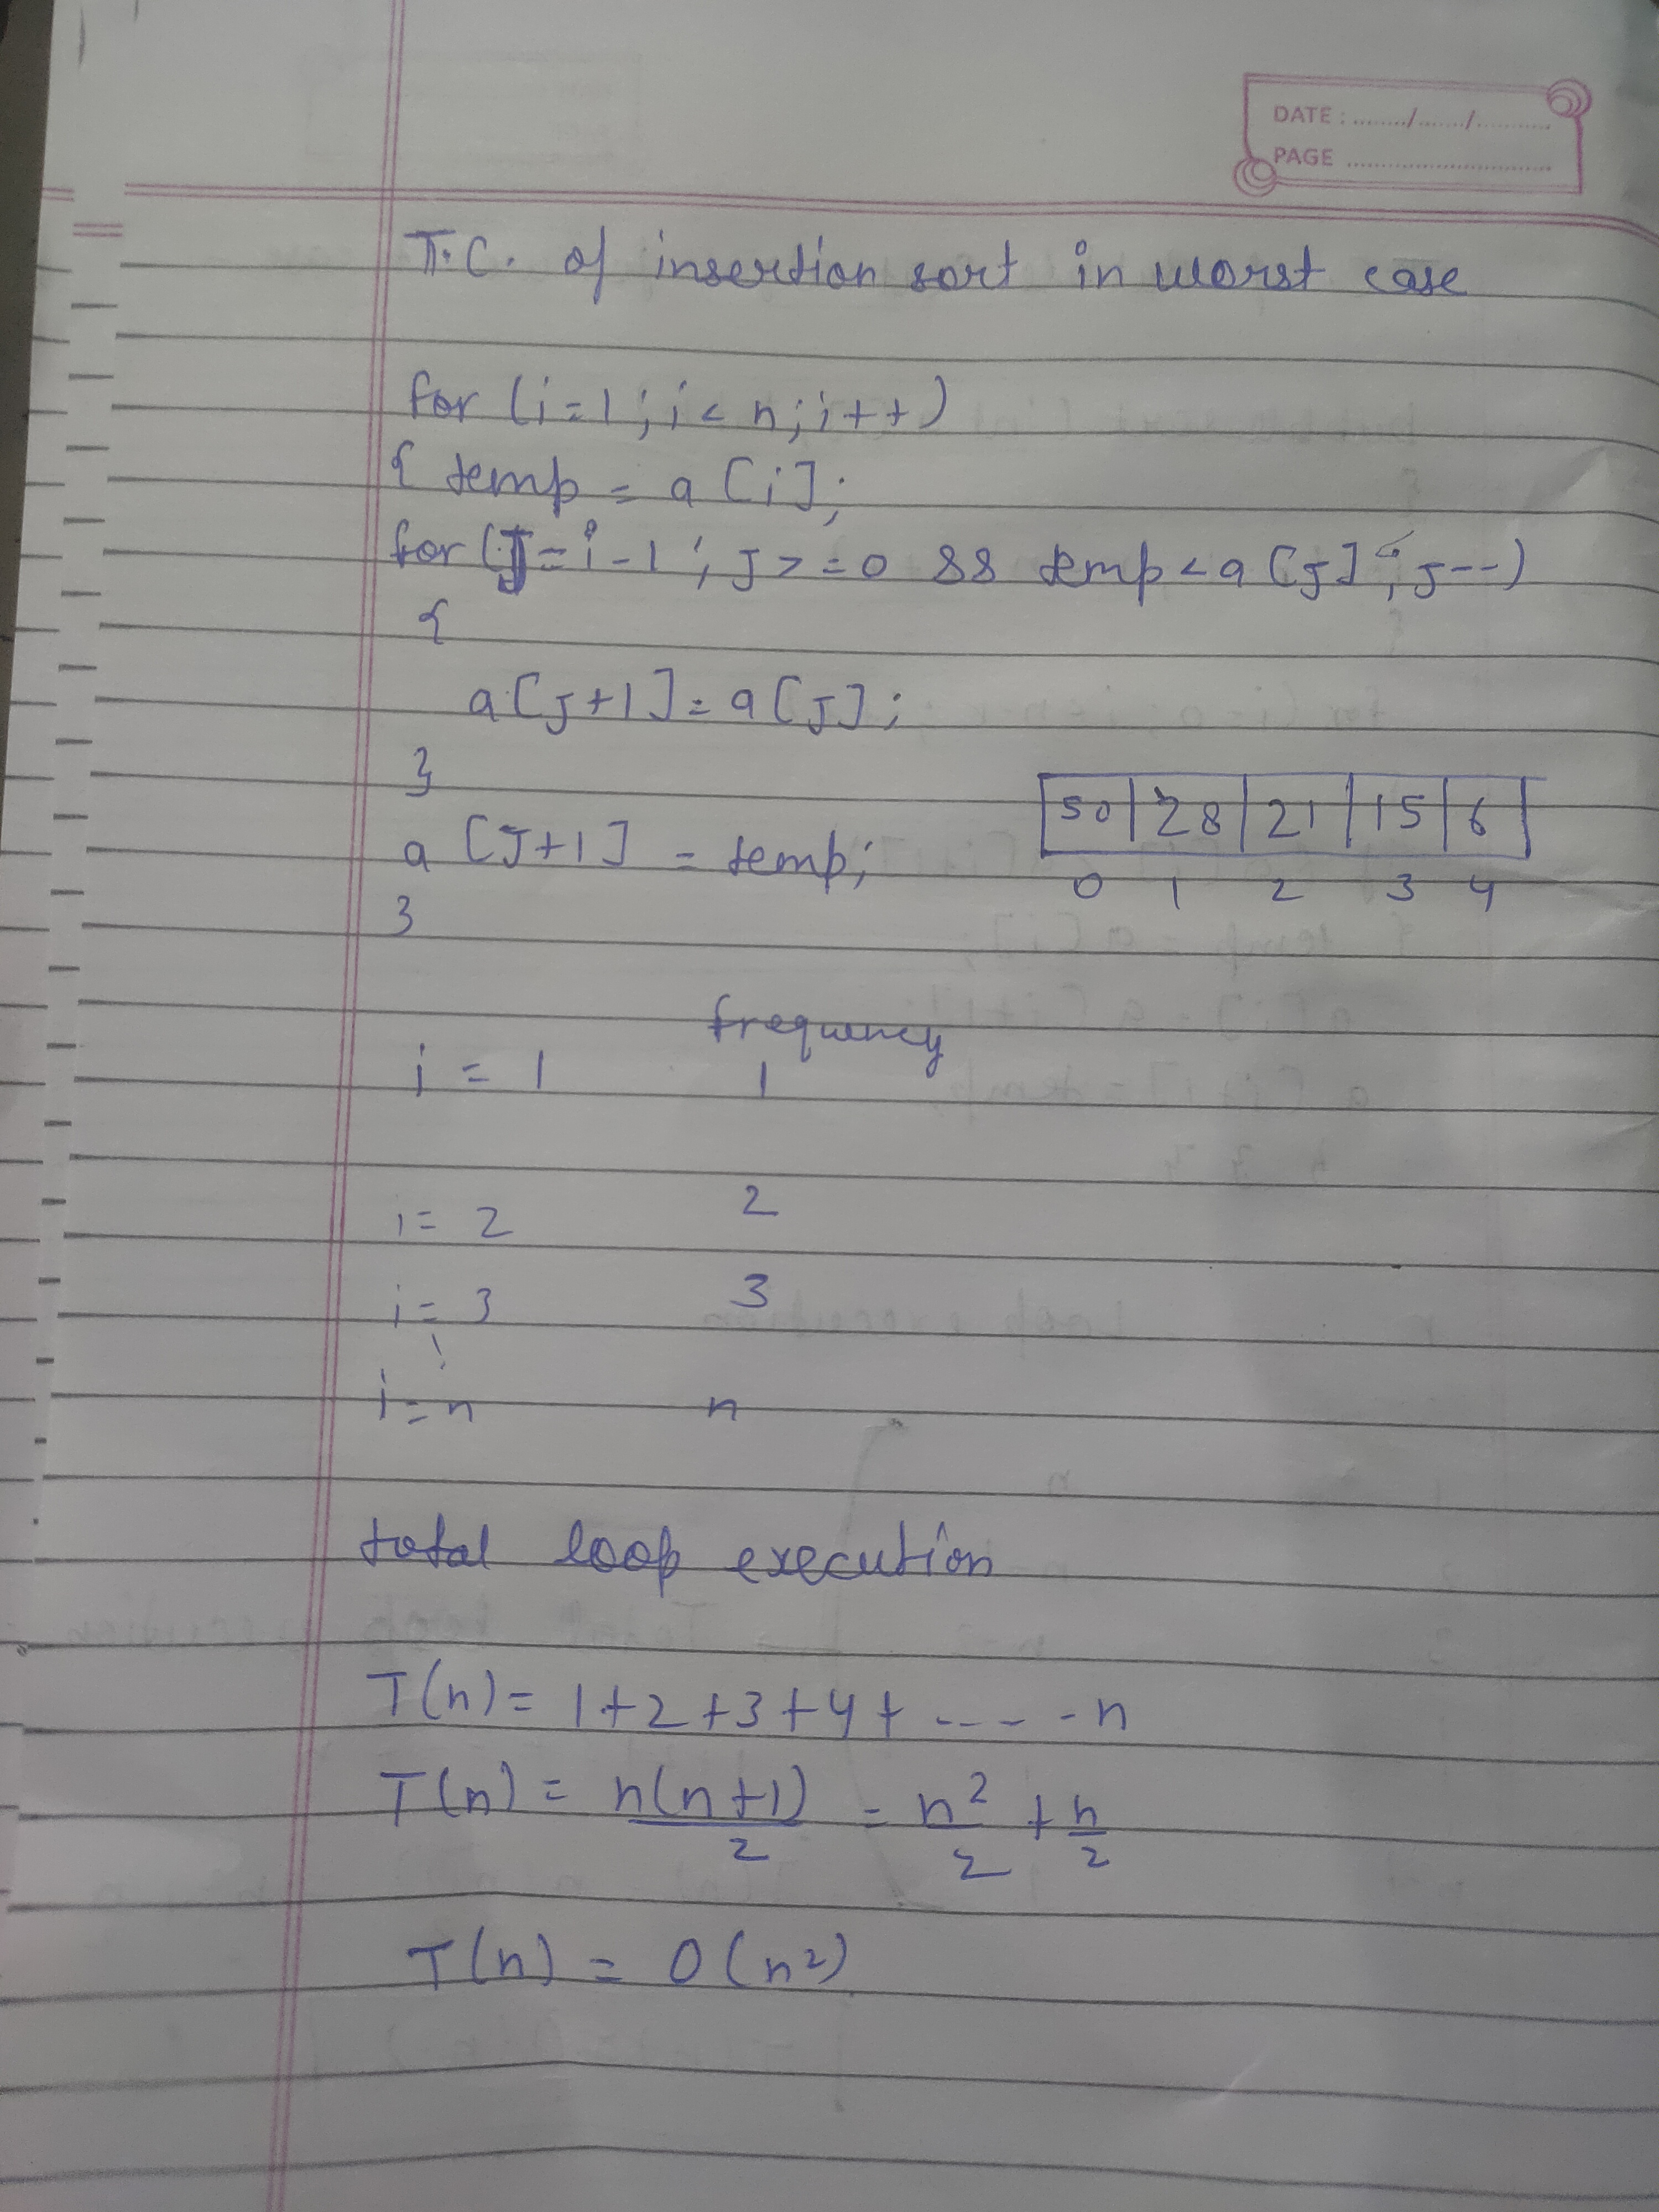 DATE : ......../......./...........
PAGE ................................
T.C. of insertion sort in worst case
for (i=1; i< n; i++)
{ temp = a[i];
for (J=i-1; J>=0 && temp<a[J]; J--)
{
a[J+1]=a[J];
}
a[J+1] = temp;
}
50 28 21 15 6
0 1 2 3 4
frequency
i = 1 1
i = 2 2
i = 3 3
i = n n
total loop execution
T(n) = 1+2+3+4+ ----- n
T(n) = n(n+1)/2 = n²/2 + n/2
T(n) = O(n²)